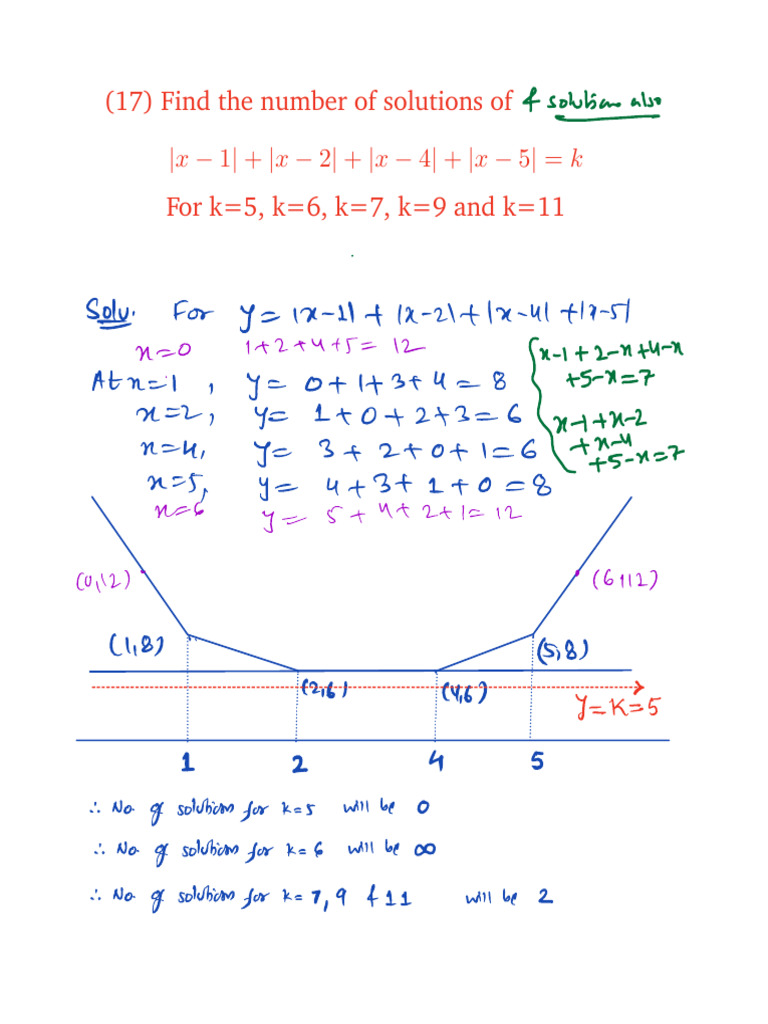 (17) Find the number of solutions of & solution also
|x − 1| + |x − 2| + |x − 4| + |x − 5| = k
For k=5, k=6, k=7, k=9 and k=11
Solu. For y = |x-1| + |x-2| + |x-4| + |x-5|
x=0 1+2+4+5= 12
At x=1, y= 0+1+3+4 = 8
x=2, y= 1+0+2+3=6
x=4, y= 3+2+0+1=6
x=5, y= 4+3+1+0=8
x=6 y= 5+4+2+1=12
x-1+2-x+4-x
+5-x=7
x-1+x-2
+x-4
+5-x=7
(0,12) (6,12)
(1,8) (5,8)
(2,6) (4,6)
y=K=5
1 2 4 5
∴ No. of solutions for k=5 will be 0
∴ No. of solutions for k=6 will be ∞
∴ No. of solutions for k=7,9 & 11 will be 2